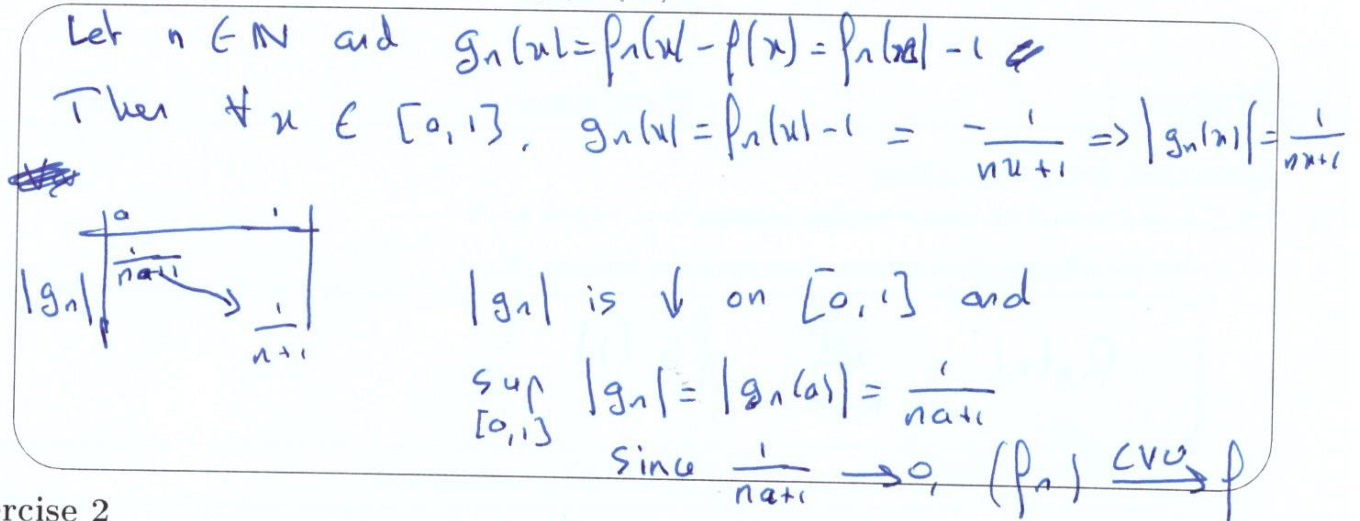 Let n ∈ ℕ and gₙ(x) = fₙ(x) - f(x) = fₙ(x) - 1
Then ∀ x ∈ [a, 1], gₙ(x) = fₙ(x) - 1 = - 1/(nx+1) => |gₙ(x)| = 1/(nx+1)
a 1
|gₙ| 1/(na+1) ↘ 1/(n+1)
|gₙ| is ↓ on [a, 1] and
sup |gₙ| = |gₙ(a)| = 1/(na+1)
[a, 1]
Since 1/(na+1) → 0, (fₙ) CVU→ f
rcise 2